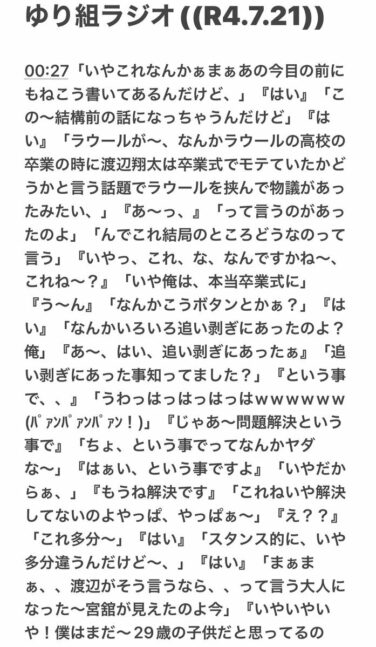 ゆり組ラジオ((R4.7.21))
00:27「いやこれなんかぁまぁあの今目の前に
もねこう書いてあるんだけど、」『はい』「こ
の〜結構前の話になっちゃうんだけど」『は
い』「ラウールが〜、なんかラウールの高校の
卒業の時に渡辺翔太は卒業式でモテていたかど
うかと言う話題でラウールを挟んで物議があっ
たみたい、」『あ〜っ、』「って言うのがあっ
たのよ」「んでこれ結局のところどうなのって
言う」『いやっ、これ、な、なんですかね〜、
これね〜？』「いや俺は、本当卒業式に」
『う〜ん』「なんかこうボタンとかぁ？」『は
い』「なんかいろいろ追い剥ぎにあったのよ？
俺」『あ〜、はい、追い剥ぎにあったぁ』「追
い剥ぎにあった事知ってました？」『という事
で、、』「うわっはっはっはっはｗｗｗｗｗｗ
(ﾊﾟｧﾝﾊﾟｧﾝﾊﾟｧﾝ！)」『じゃあ〜問題解決という
事で』「ちょ、という事でってなんかヤダ
な〜」『はぁい、という事ですよ』「いやだか
らぁ、」『もうね解決です』「これねいや解決
してないのよやっぱ、やっぱぁ〜」『え？？』
「これ多分〜」『はい』「スタンス的に、いや
多分違うんだけど〜、」『はい』「まぁま
ぁ、、渡辺がそう言うなら、、って言う大人に
なった〜宮舘が見えたのよ今」『いやいやい
や！僕はまだ〜29歳の子供だと思ってるの